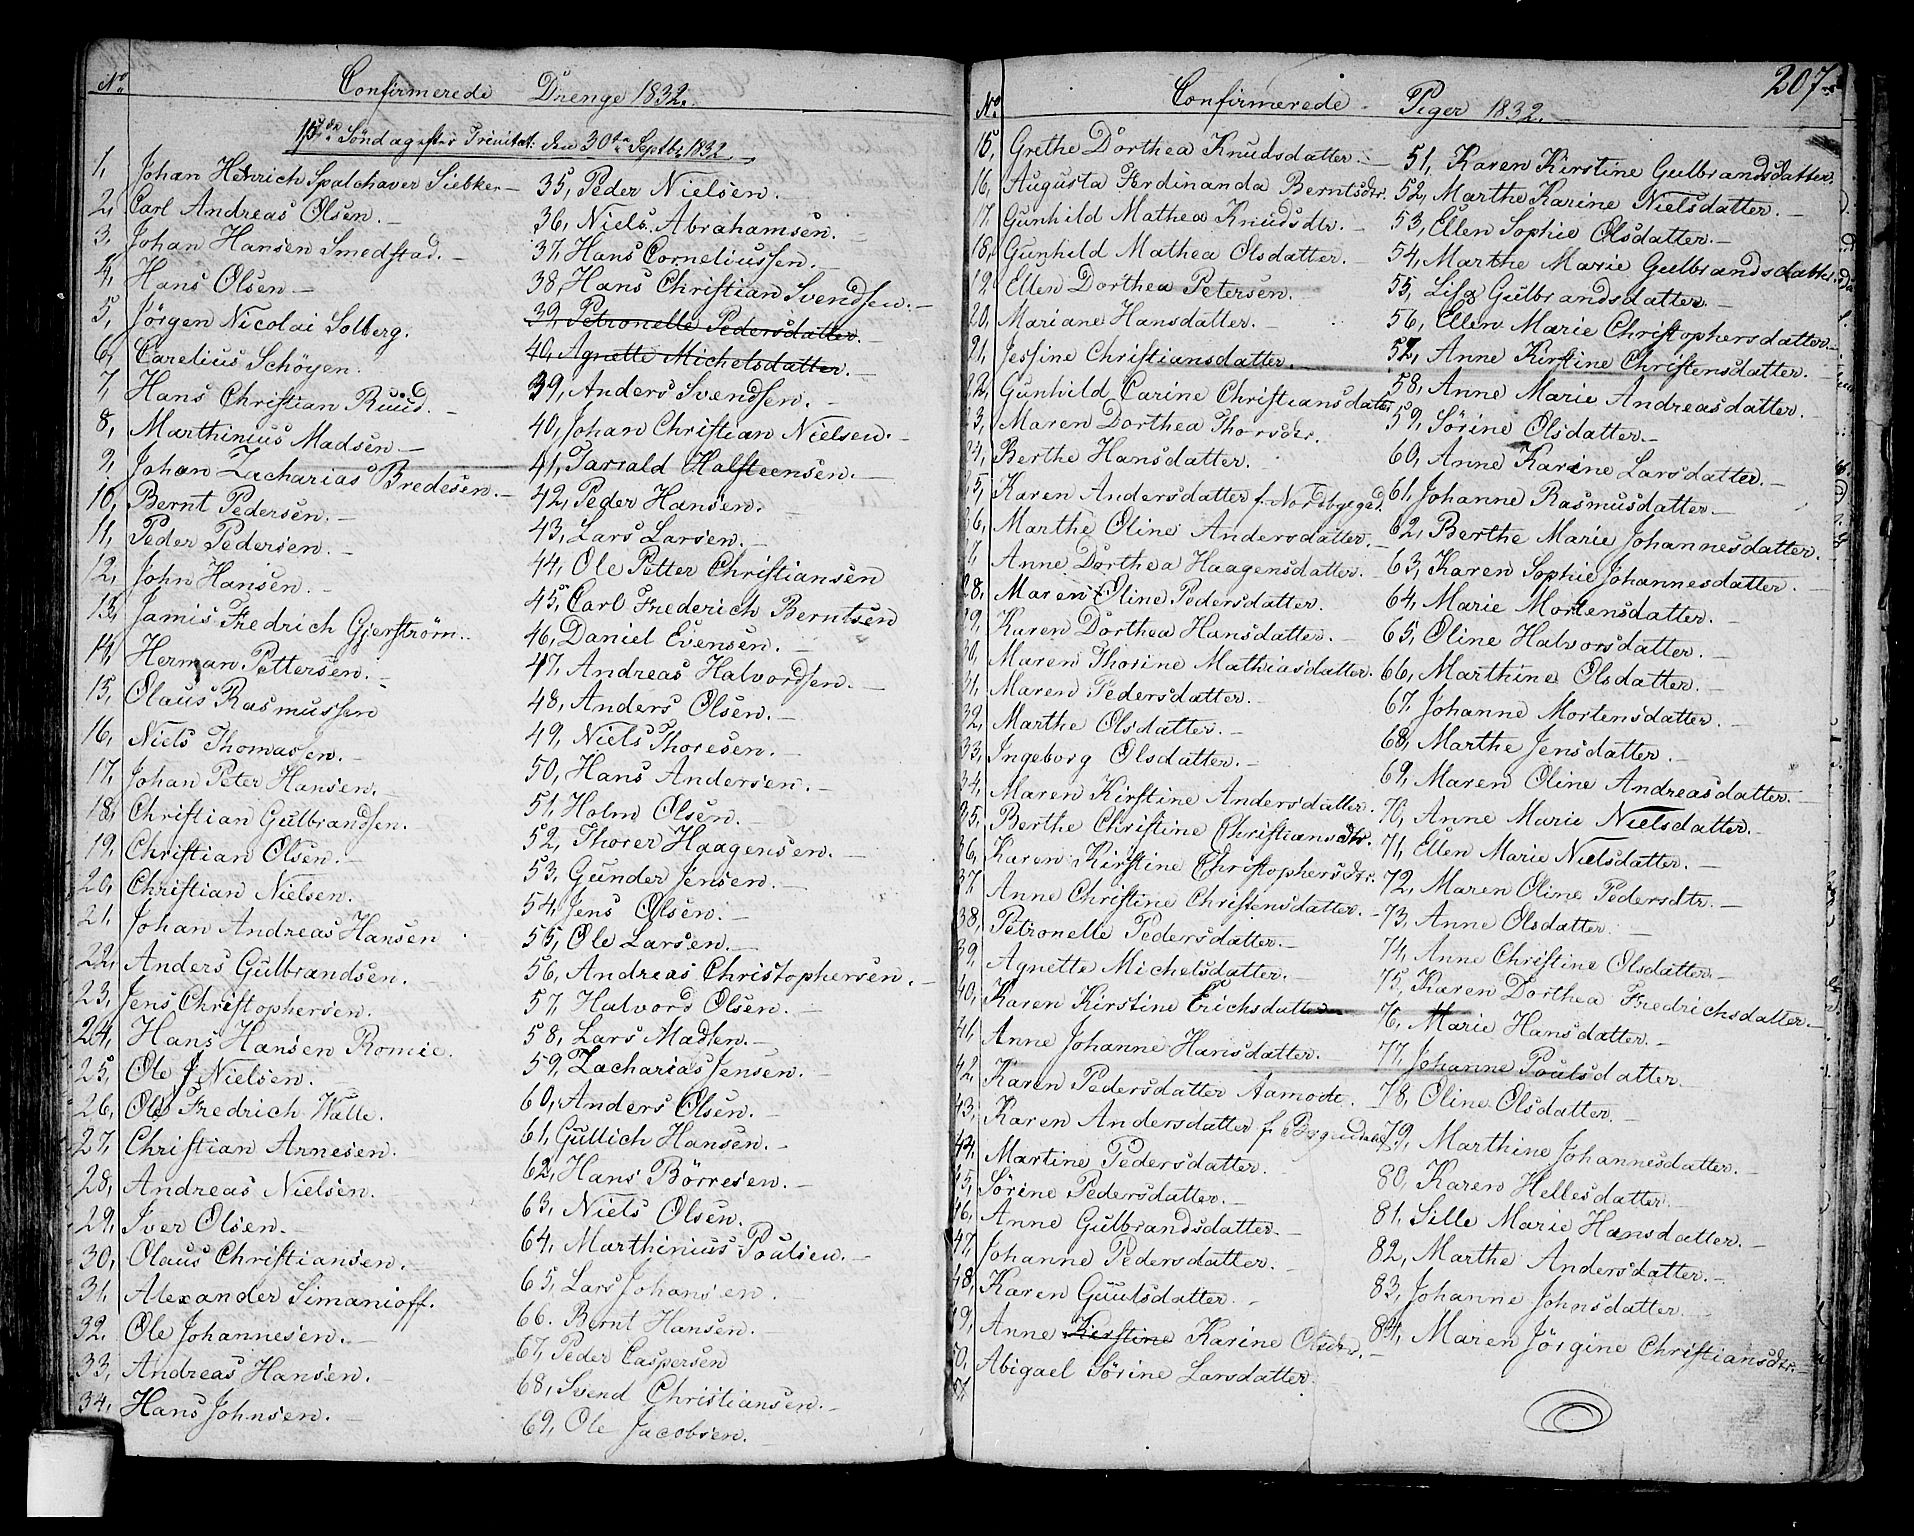 No
Confirmerede Drenge 1832.
15de Söndag efter Trinitat: den 30te Septbr 1832
1, Johan Henrich Spalchaver Siebker
2, Carl Andreas Olsen.
3, Johan Hansen Smedstad.
4, Hans Olsen
5, Jörgen Nicolai Solberg.
6, Carelius Schöyen.
7, Hans Christian Ruud.
8, Marthinius Madsen
9, Johan Zacharias Bredesen.
10, Bernt Pedersen.
11, Peder Pedersen.
12, John Hansen.
13, Jamis Fredrich Gjerström.
14, Herman Pettersen.
15, Olaus Rasmussen
16, Niels Thomassen.
17, Johan Peter Hansen.
18, Christian Gulbrandsen.
19, Christian Olsen.
20, Christian Nielsen.
21, Johan Andreas Hansen
22, Anders Gulbrandsen.
23, Jens Christophersen.
24, Hans Hansen Romie.
25, Ole J Nielsen.
26, Ole Fredrich Walle.
27, Christian Arnesen.
28, Andreas Nielsen.
29, Iver Olsen.
30, Olaus Christiansen.
31, Alexander Simanioff.
32, Ole Johannesen.
33, Andreas Hansen.
34, Hans Johnsen.
35, Peder Nielsen.
36, Niels Abrahamsen.
37, Hans Corneliussen.
38 Hans Christian Svendsen.
39, Petronelle Pedersdatter.
40, Agnette Michelsdatter.
39, Anders Svendsen.
40, Johan Christian Nielsen.
41, Tarrald Halsteensen.
42, Peder Hansen.
43, Lars Larsen.
44, Ole Petter Christiansen
45, Carl Frederich Berntsen
46, Daniel Evensen.
47, Andreas Halvordsen.
48, Anders Olsen.
49, Niels Thoresen.
50, Hans Andersen.
51, Holm Olsen.
52, Thorer Haagensen.
53, Gunder Jensen.
54, Jens Olsen.
55, Ole Larsen.
56, Andreas Christophersen.
57, Halvord Olsen.
58, Lars Madsen.
59, Zacharias Jensen.
60, Anders Olsen.
61, Gullich Hansen.
62, Hans Börresen.
63, Niels Olsen.
64, Marthinius Poulsen.
65, Lars Johansen.
66. Bernt Hansen.
67, Peder Caspersen
68, Svend Christiansen.
69, Ole Jacobsen.
207
No
Confirmerede Piger 1832.
15, Grethe Dorthea Knudsdatter.
16, Augusta Ferdinanda Berntsdtr.
17, Gunhild Mathea Knudsdtr.
18, Gunhild Mathea Olsdatter.
19, Ellen Dorthea Petersen.
20, Mariane Hansdatter.
21, Jessine Christiansdatter.
22, Gunhild Carine Christiansdatter
23, Maren Dorthea Thorsdtr.
24, Berthe Hansdatter.
25, Karen Andersdatter f. Nordbyeged.
26, Marthe Oline Andersdatter.
27, Anne Dorthea Haagensdatter.
28, Maren Oline Pedersdatter.
29, Karen Dorthea Hansdatter.
30, Maren Thorine Mathiasdatter.
31, Maren Pedersdatter.
32, Marthe Olsdatter.
33, Ingeborg Olsdatter.
34, Maren Kirstine Andersdatter.
35, Berthe Christine Christiansdtr.
36, Karen Kirstine Christophersdtr.
37, Anne Christine Christensdatter.
38, Petronelle Pedersdatter.
39, Agnette Michelsdatter.
40, Karen Kirstine Erichsdatter
41, Anne Johanne Hansdatter.
42, Karen Pedersdatter Aamodt.
43, Karen Andersdatter f
44, Martine Pedersdatter.
45, Sörine Pedersdatter.
46, Anne Gulbrandsdatter.
47, Johanne Pedersdatter.
48, Karen Guulsdatter.
49, Anne Kirstine Karine Olsdtr.
50, Abigael Sörine Larsdatter.
51
51, Karen Kirstine Gulbrandsdatter.
52, Marthe Karine Nielsdatter.
53, Ellen Sophie Olsdatter.
54, Marthe Marie Gulbrandsdatter
55, Lisa Gulbrandsdatter.
56, Ellen Marie Christophersdatter.
57, Anne Kirstine Christensdatter.
58, Anne Marie Andreasdatter.
59, Sörine Olsdatter.
60, Anne Karine Larsdatter.
61, Johanne Rasmusdatter.
62, Berthe Marie Johannesdatter.
63, Karen Sophie Johannesdatter.
64, Marie Mortensdatter.
65, Oline Halvorsdatter.
66, Marthine Olsdatter.
67, Johanne Mortensdatter.
68, Marthe Jensdatter.
69, Maren Oline Andreasdatter.
70, Anne Marie Nielsdatter.
71, Ellen Marie Nielsdatter.
72, Maren Oline Pedersdtr.
73, Anne Olsdatter.
74, Anne Christine Olsdatter.
75, Karen Dorthea Fredrichsdatter.
76, Marie Hansdatter.
77, Johanne Poulsdatter.
78, Oline Olsdatter.
79, Marthine Johannesdatter.
80, Karen Hellesdatter.
81, Sille Marie Hansdatter.
82, Marthe Andersdatter.
83, Johanne Johnsdatter.
84, Maren Jörgine Christiansdtr.